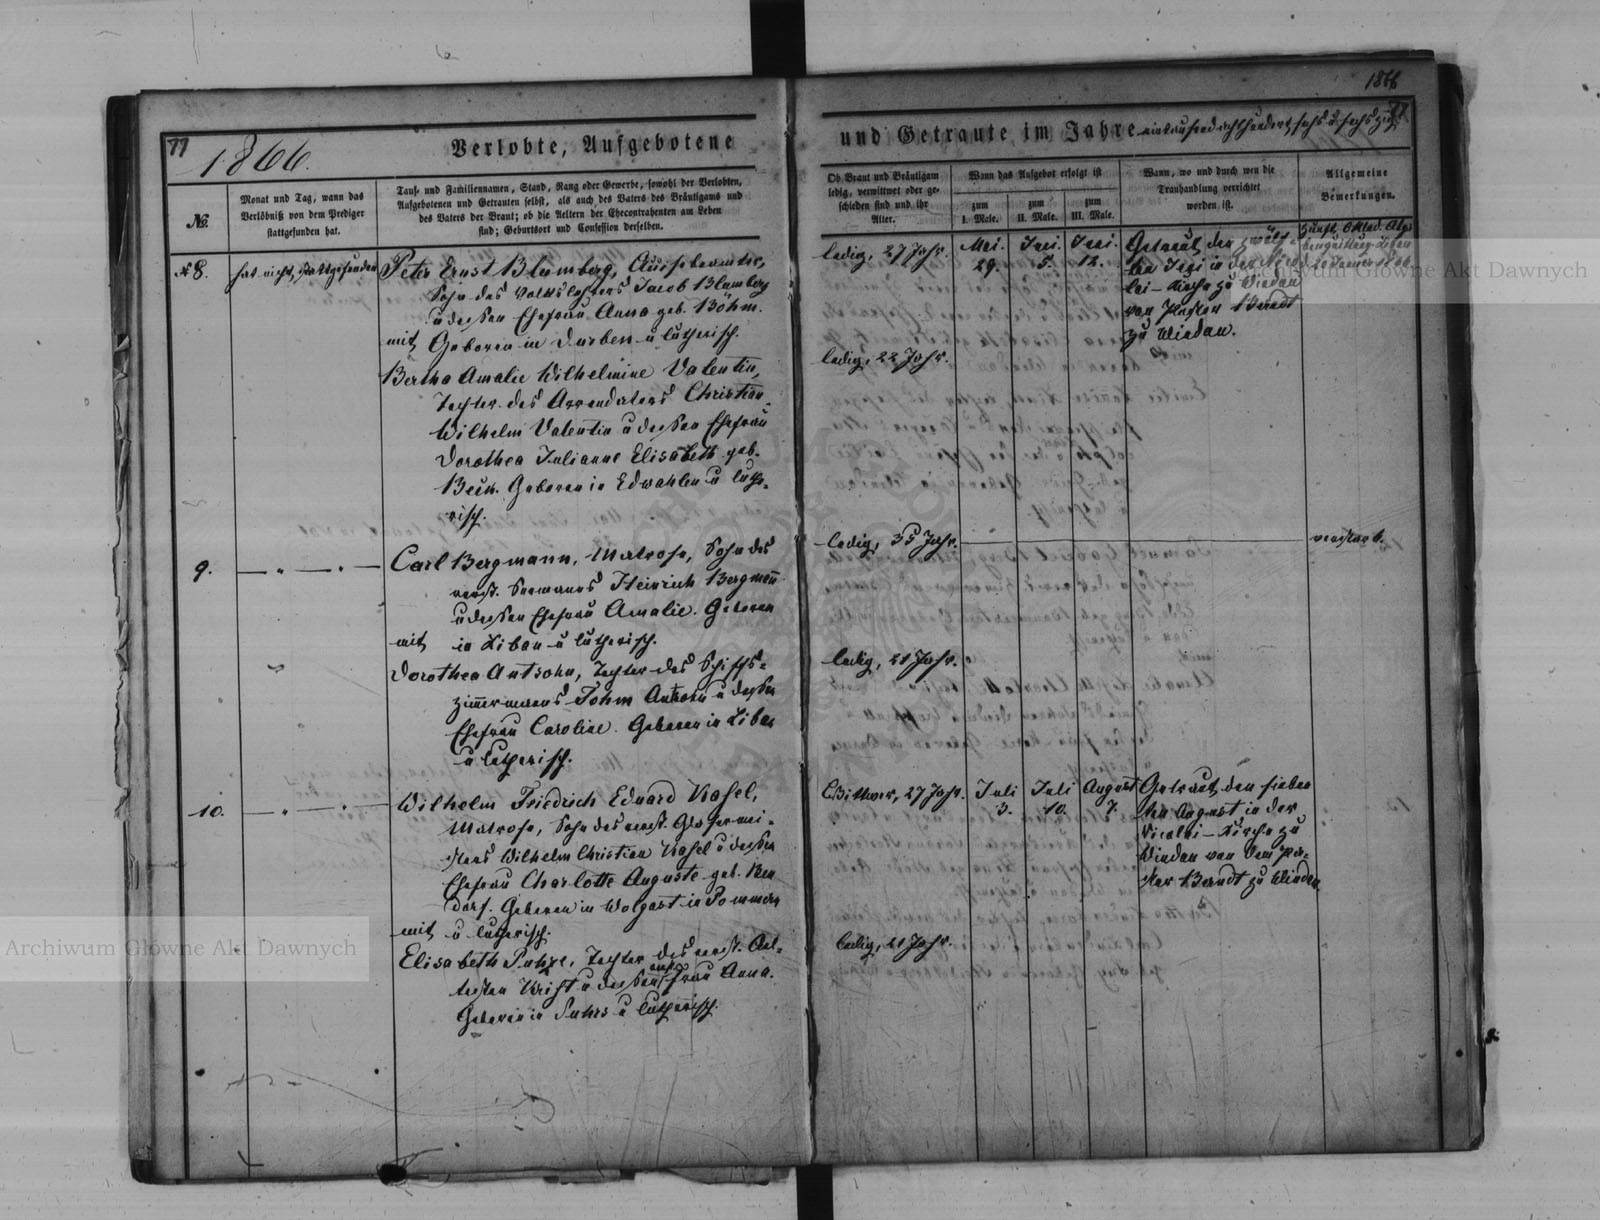 1866
77
1866.
Verlobte, Aufgebotene
und Getraute im Jahre eintausendachthundert sechs u. sechszig
№.
Monat und Tag, wann das
Verlöbniß von dem Prediger
stattgefunden hat.
Tauf- und Familiennamen, Stand, Rang oder Gewerbe, sowohl der Verlobten,
Aufgebotenen und Getrauten selbst, als auch des Vaters des Bräutigams und
des Vaters der Braut; ob die Aeltern der Ehecontrahenten am Leben
sind; Geburtsort und Confession derselben.
Ob Braut und Bräutigam
ledig, verwittwet oder ge-
schieden sind und ihr
Alter.
Wann das Aufgebot erfolgt ist
zum
I. Male.
zum
II. Male.
zum
III. Male.
Wann, wo und durch wen die
Trauhandlung verrichtet
worden ist.
Allgemeine
Bemerkungen.
8.
hat nicht stattgefunden
Peter Ernst Blumberg,
Sohn des Volkslehrers Jacob Blumberg
u dessen Ehefrau Anna geb. Böhm.
mit Geboren in Durben u lutherisch.
Bertha Amalie Wilhelmine Valentin,
Tochter des Arrendators Christian
Wilhelm Valentin u dessen Ehefrau
Dorothea Julianne Elisabeth geb.
Beck. Geboren in Edwahlen u luthe-
risch.
ledig, 27 Jahr.
Mai.
29.
Juni.
5.
Juni.
12.
Getraut den zwölf-
ten Juni in der
lai-Kirche zu Windau
von Pastor Berndt
zu Windau.
ledig, 22 Jahr.
9.
— " — " —
Carl Bergmann, Matrose, Sohn des
verst. Seemanns Heinrich Bergmann
u dessen Ehefrau Amalie. Geboren
mit in Libau u lutherisch.
Dorothea Antsohn, Tochter des Schiffs-
zimmermanns Johm Antsohn u dessen
Ehefrau Caroline. Geboren in Libau
u lutherisch.
ledig, 35 Jahr.
verstarb.
ledig, 21 Jahr.
10.
— " — " —
Wilhelm Friedrich Eduard Kasel,
Matrose, Sohn des verst. Glasermei-
sters Wilhelm Christian Kasel u dessen
Ehefrau Charlotte Auguste geb. Ben
dorf. Geboren in Wolgast in Pommern
mit u lutherisch.
Elisabeth Puhze, Tochter des verst. Ael-
testen Krist u dessen Ehefrau Anna.
Geboren in Suhrs u lutherisch.
Wittwer, 27 Jahr.
Juli
3.
Juli
10.
August
7.
Getraut den sieben
ten August in der
Nicolai-Kirche zu
Windau von dem Pa-
stor Berndt zu Windau
ledig, 21 Jahr.
Archiwum Główne Akt Dawnych
Archiwum Główne Akt Dawnych